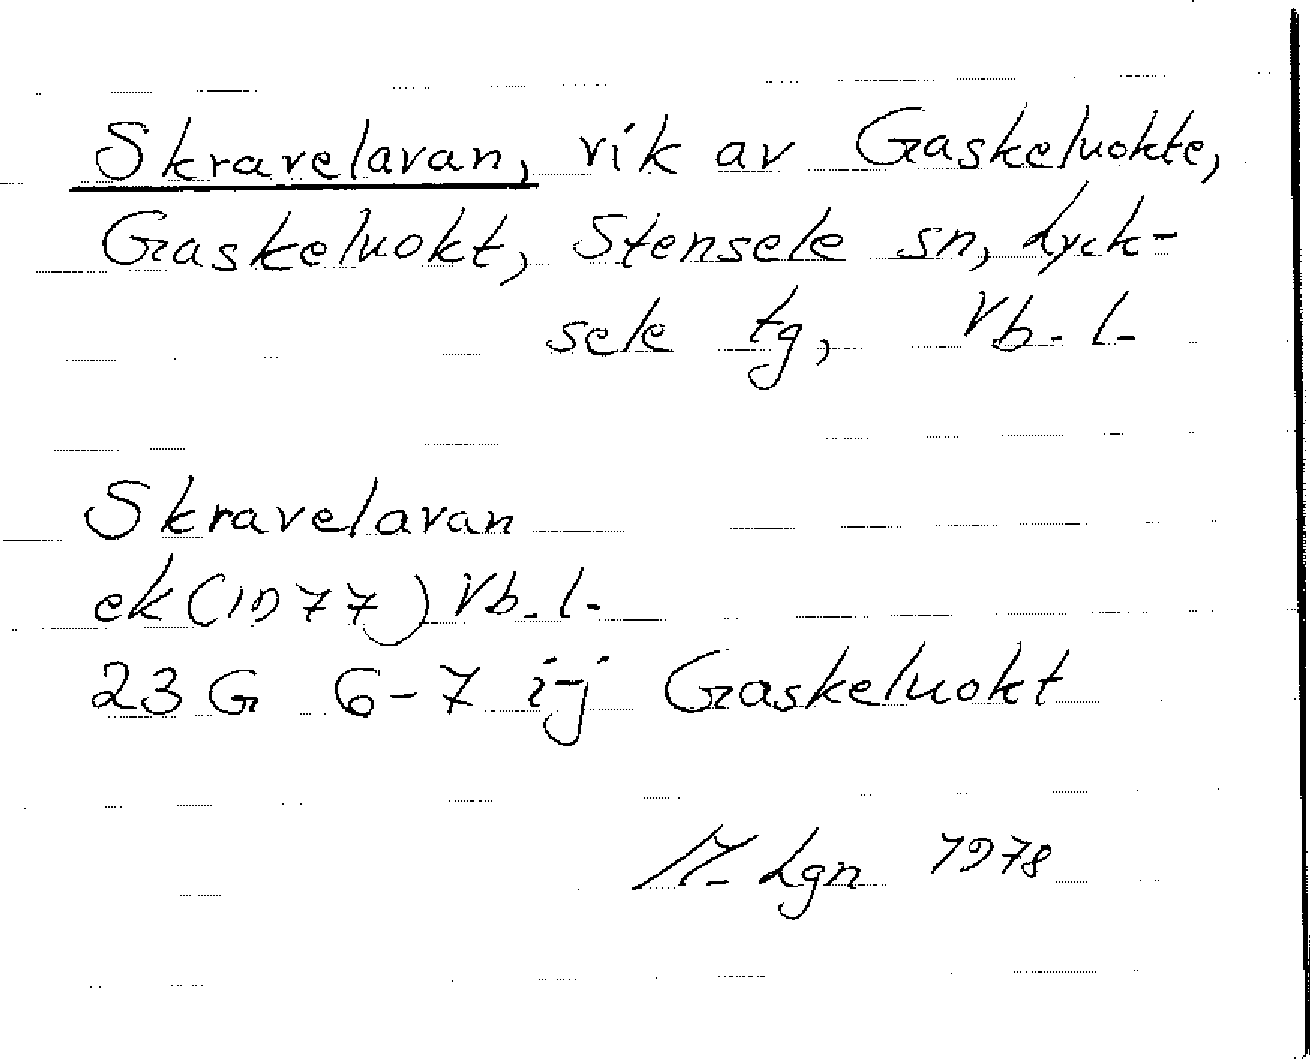 Skravelavan, vik av Gaskeluokte,
Gaskeluokt, Stensele sn, Lyck-
sele tg, Vb. l.
Skravelavan
ek (1977) Vb. l.
23 G 6-7 i-j Gaskeluokt
Lgn 1978